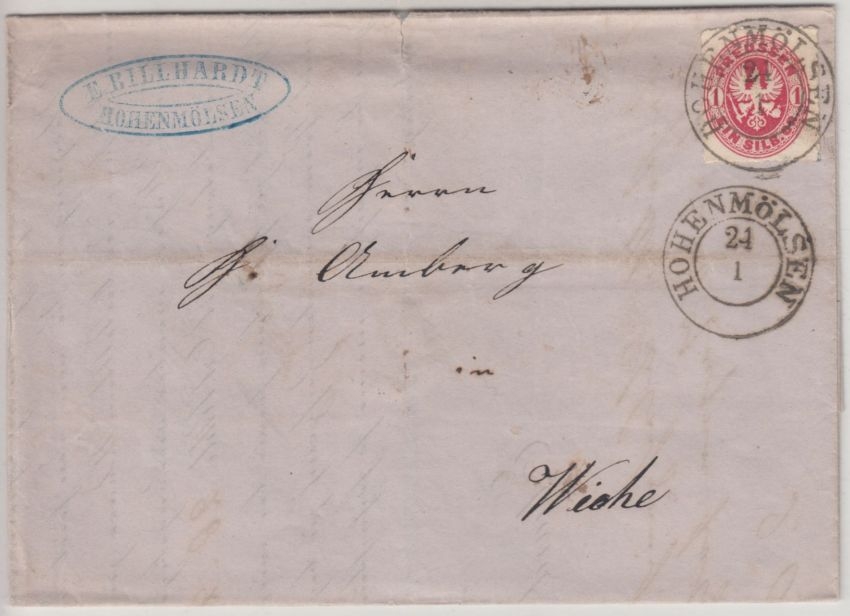 E. BILLHARDT
HOHENMÖLSEN
HOHENMÖLSEN
24
1
PREUSSEN
1 1
EIN SILB.
HOHENMÖLSEN
24
1
Herrn
Amberg
in
Wiehe